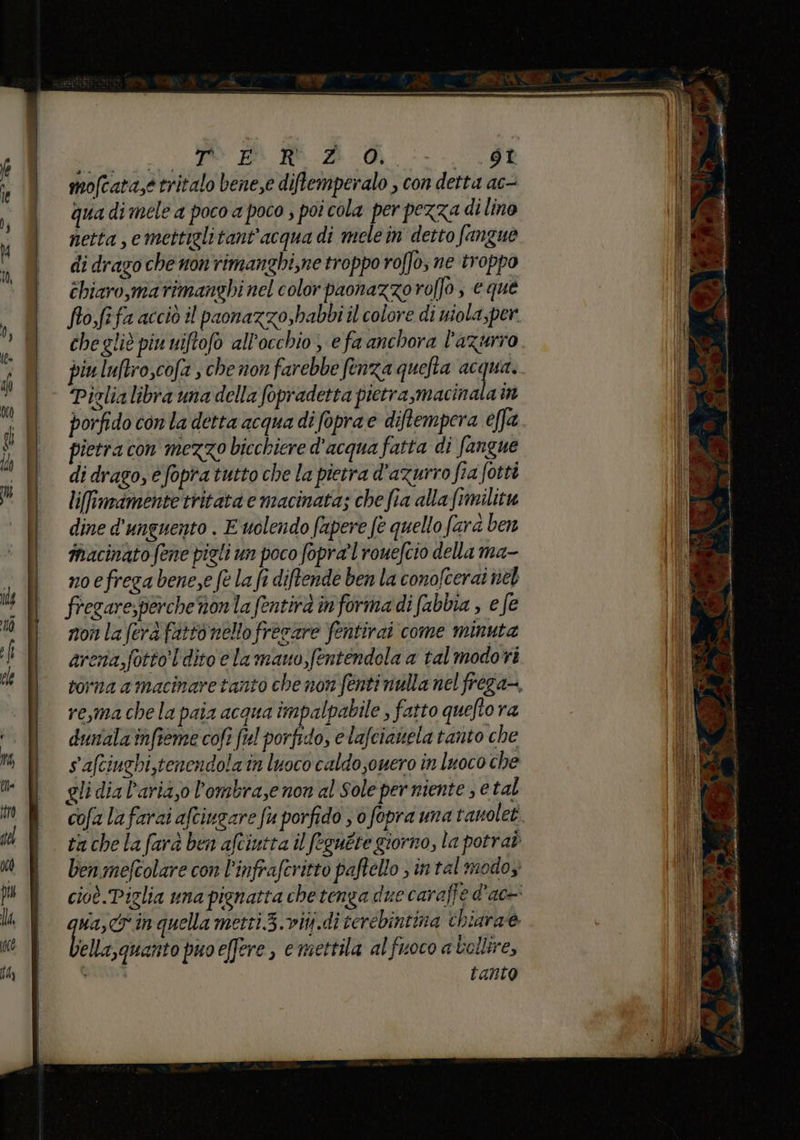 T E R Z O. 91
moſcata,e tritalo bene,e diſtemperalo , con detta ac-
qua di mele a poco a poco , poi cola per pezza di lino
netta , e mettigli tant'acqua di mele in detto ſangue
di drago che non rimanghi,ne troppo roſſo, ne troppo
chiaro,ma rimanghi nel color paonazzo roſſo , e que
ſto,ſi fa acciò il paonazzo,habbi il colore di uiola,per
che gliè piu uiſtoſo all'occhio , e fa anchora l'azurro
piu luſtro,coſa , che non farebbe ſenza queſta acqua.
Piglia libra una della ſopradetta pietra,macinala in
porfido con la detta acqua di ſopra e diſtempera eſſa
pietra con mezzo bicchiere d'acqua fatta di ſangue
di drago, e ſopra tutto che la pietra d'azurro ſia ſotti
liſſimamente tritata e macinata; che ſia alla ſimilitu
dine d'unguento . E uolendo ſapere ſe quello ſarà ben
macinato ſene pigli un poco ſopra'l roueſcio della ma-
no e frega bene,e ſe la ſi diſtende ben la conoſcerai nel
fregare,perche non la ſentirà in forma di ſabbia , e ſe
non la ſerà fatto nello fregare ſentirai come minuta
arena,ſotto'l dito e la mano,ſentendola a tal modo ri
torna a macinare tanto che non ſenti nulla nel frega-
re,ma che la paia acqua impalpabile , fatto queſto ra
dunala inſieme coſi ſul porfido, e laſciauela tanto che
s'aſciughi,tenendola in luoco caldo,ouero in luoco che
gli dia l'aria,o l'ombra,e non al Sole per niente , e tal
coſa la farai aſciugare ſu porfido , o ſopra una tauolet
ta che la ſarà ben aſciutta il ſeguẽte giorno, la potrai
ben meſcolare con l'infraſcritto paſtello , in tal modo,
cioè.Piglia una pignatta che tenga due caraffe d'ac-
qua,& in quella metti.ʒ.viij.di terebintina chiara e
bella,quanto puo eſſere , e mettila al fuoco a bollire,
tanto